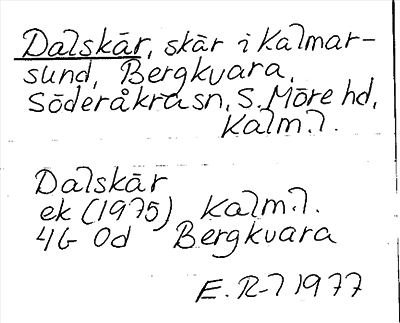 Dalskär, skär i Kalmar-
sund, Bergkvara,
Söderåkra sn, S. Möre hd,
Kalm. l.
Dalskär
ek (1975) Kalm. l.
4G 0d Bergkvara
E. R-l 1977